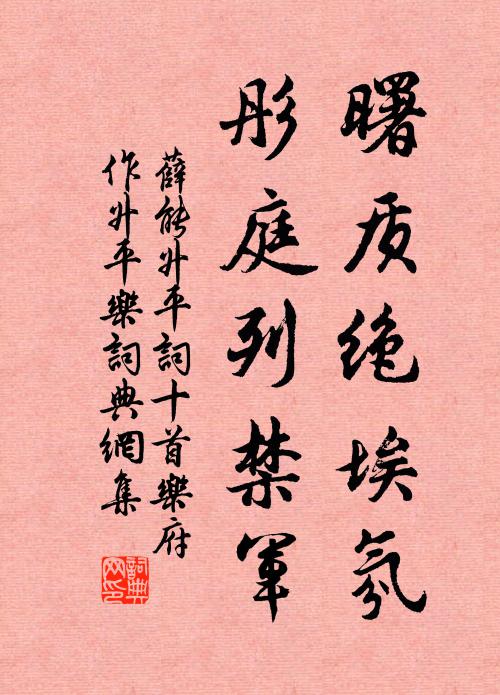 曙质绝埃氛
彤庭列禁軍
薛能升平詞十首樂府
作升平樂詞典網集
詞典
网印